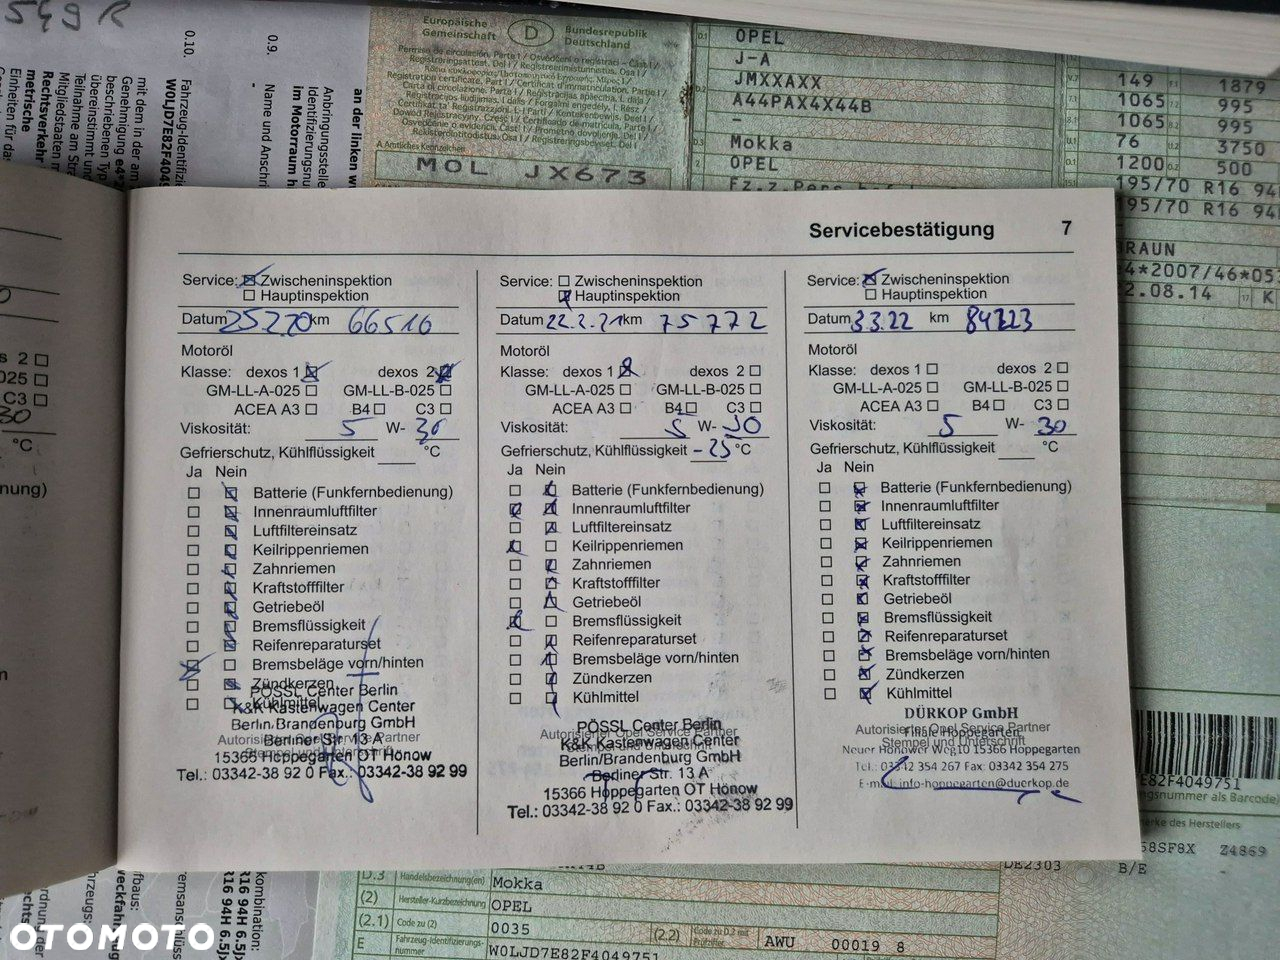 549 R
0.10.
Fahrzeug-Identifizi
W0LJD7E82F4049
0.9.
-
Name und Anschri
mit dem in der am
Genehmigung e4*2
beschriebenen Typ
übereinstimmt und
Teilnahme am Str
Mitgliedstaaten m
Rechtsverkehr
metrische
Einheiten für das
an der linken
Anbringungsstelle
Identifizierungsnu
im Motorraum
Europäische
Gemeinschaft
D
Bundesrepublik
Deutschland
MOL JX673
OPEL
J-A
JMXXAXX
A44PAX4X44B
-
Mokka
OPEL
149 1879
1065 995
1065 995
76 3750
1200 500
195/70 R16 94
195/70 R16 94
RAUN
4*2007/46*05
2.08.14 K
Servicebestätigung 7
Service: Zwischeninspektion
Hauptinspektion
Datum 25.2.20 km 66516
Motoröl
Klasse: dexos 1 dexos 2
GM-LL-A-025 GM-LL-B-025
ACEA A3 B4 C3
Viskosität: 5 W- 30
Gefrierschutz, Kühlflüssigkeit °C
Ja Nein
Batterie (Funkfernbedienung)
Innenraumluftfilter
Luftfiltereinsatz
Keilrippenriemen
Zahnriemen
Kraftstofffilter
Getriebeöl
Bremsflüssigkeit
Reifenreparaturset
Bremsbeläge vorn/hinten
Zündkerzen
Kühlmittel
PÖSSL Center Berlin
K&K Kastenwagen Center
Berlin/Brandenburg GmbH
Autorisierter Opel Service Partner
Stempel und Unterschrift
Berliner Str. 13 A
15366 Hoppegarten OT Hönow
Tel.: 03342-38 92 0 Fax.: 03342-38 92 99
Service: Zwischeninspektion
Hauptinspektion
Datum 22.2.21 km 75772
Motoröl
Klasse: dexos 1 dexos 2
GM-LL-A-025 GM-LL-B-025
ACEA A3 B4 C3
Viskosität: 5 W- 30
Gefrierschutz, Kühlflüssigkeit -25 °C
Ja Nein
Batterie (Funkfernbedienung)
Innenraumluftfilter
Luftfiltereinsatz
Keilrippenriemen
Zahnriemen
Kraftstofffilter
Getriebeöl
Bremsflüssigkeit
Reifenreparaturset
Bremsbeläge vorn/hinten
Zündkerzen
Kühlmittel
PÖSSL Center Berlin
Autorisierter Opel Service Partner
K&K Kastenwagen Center
Stempel und Unterschrift
Berlin/Brandenburg GmbH
Berliner Str. 13 A
15366 Hoppegarten OT Hönow
Tel.: 03342-38 92 0 Fax.: 03342-38 92 99
Service: Zwischeninspektion
Hauptinspektion
Datum 3.3.22 km 84223
Motoröl
Klasse: dexos 1 dexos 2
GM-LL-A-025 GM-LL-B-025
ACEA A3 B4 C3
Viskosität: 5 W- 30
Gefrierschutz, Kühlflüssigkeit °C
Ja Nein
Batterie (Funkfernbedienung)
Innenraumluftfilter
Luftfiltereinsatz
Keilrippenriemen
Zahnriemen
Kraftstofffilter
Getriebeöl
Bremsflüssigkeit
Reifenreparaturset
Bremsbeläge vorn/hinten
Zündkerzen
Kühlmittel
DÜRKOP GmbH
Autorisierter Opel Service Partner
Filiale Hoppegarten
Stempel und Unterschrift
Neuer Hönower Weg 10 15366 Hoppegarten
Tel.: 03342 354 267 Fax: 03342 354 275
E-mail: info-hoppegarten@duerkop.de
E82F4049751
D.3 Handelsbezeichnung(en) Mokka
(2) Hersteller-Kurzbezeichnung OPEL
(2.1) Code zu (2) 0035 (2.2) Code zu D.2 mit Prüfziffer AWU 00019 8
E Fahrzeug-Identifizierungs-nummer W0LJD7E82F4049751
DE2303
58SF8X Z4869
B/E
OTOMOTO